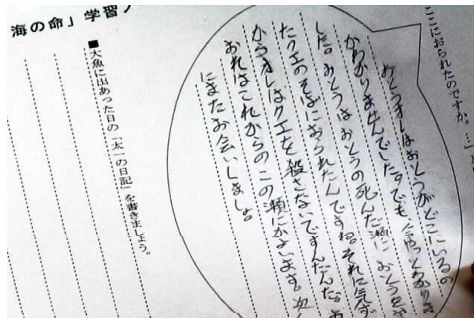 ここにおられたのですか。」
おとうオレはおとうがどこにいるの
かわかりませんでした。でも今、分かりま
した。おとうはおとうの死んだ瀬におとうを
たクエのそばにおられたんですね。それに気ず
からオレはクエを殺さないですんだんだ。
おれはこれからのこの瀬にかよいます。次
にまたお会いしましょ。
■大魚に出あった日の「太一の日記」を書きましょう。
海の命」学習